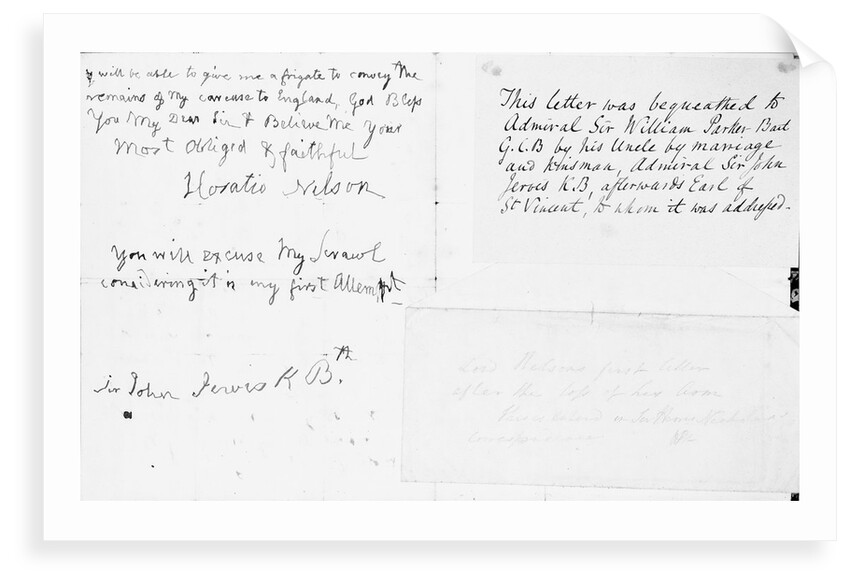 will be able to give me a frigate to convey the
remains of my carcuse to England, God Bless
You My Dear Sir & Believe Me Your
Most Obliged & faithful
Horatio Nelson
You will excuse My Scrawl
considering it is my first Attempt
Sir John Jervis K B.th
This letter was bequeathed to
Admiral Sir William Parker Bart
G.C.B by his Uncle by marriage
and kinsman, Admiral Sir John
Jervis K.B, afterwards Earl of
St Vincent, to whom it was addressed.
Lord Nelsons first letter
after the loss of his Arm
This is in Sir Nicholas
correspondence